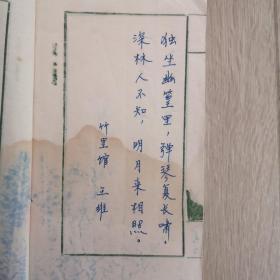 独坐幽篁里，弹琴复长啸。
深林人不知，明月来相照。
竹里馆 王维